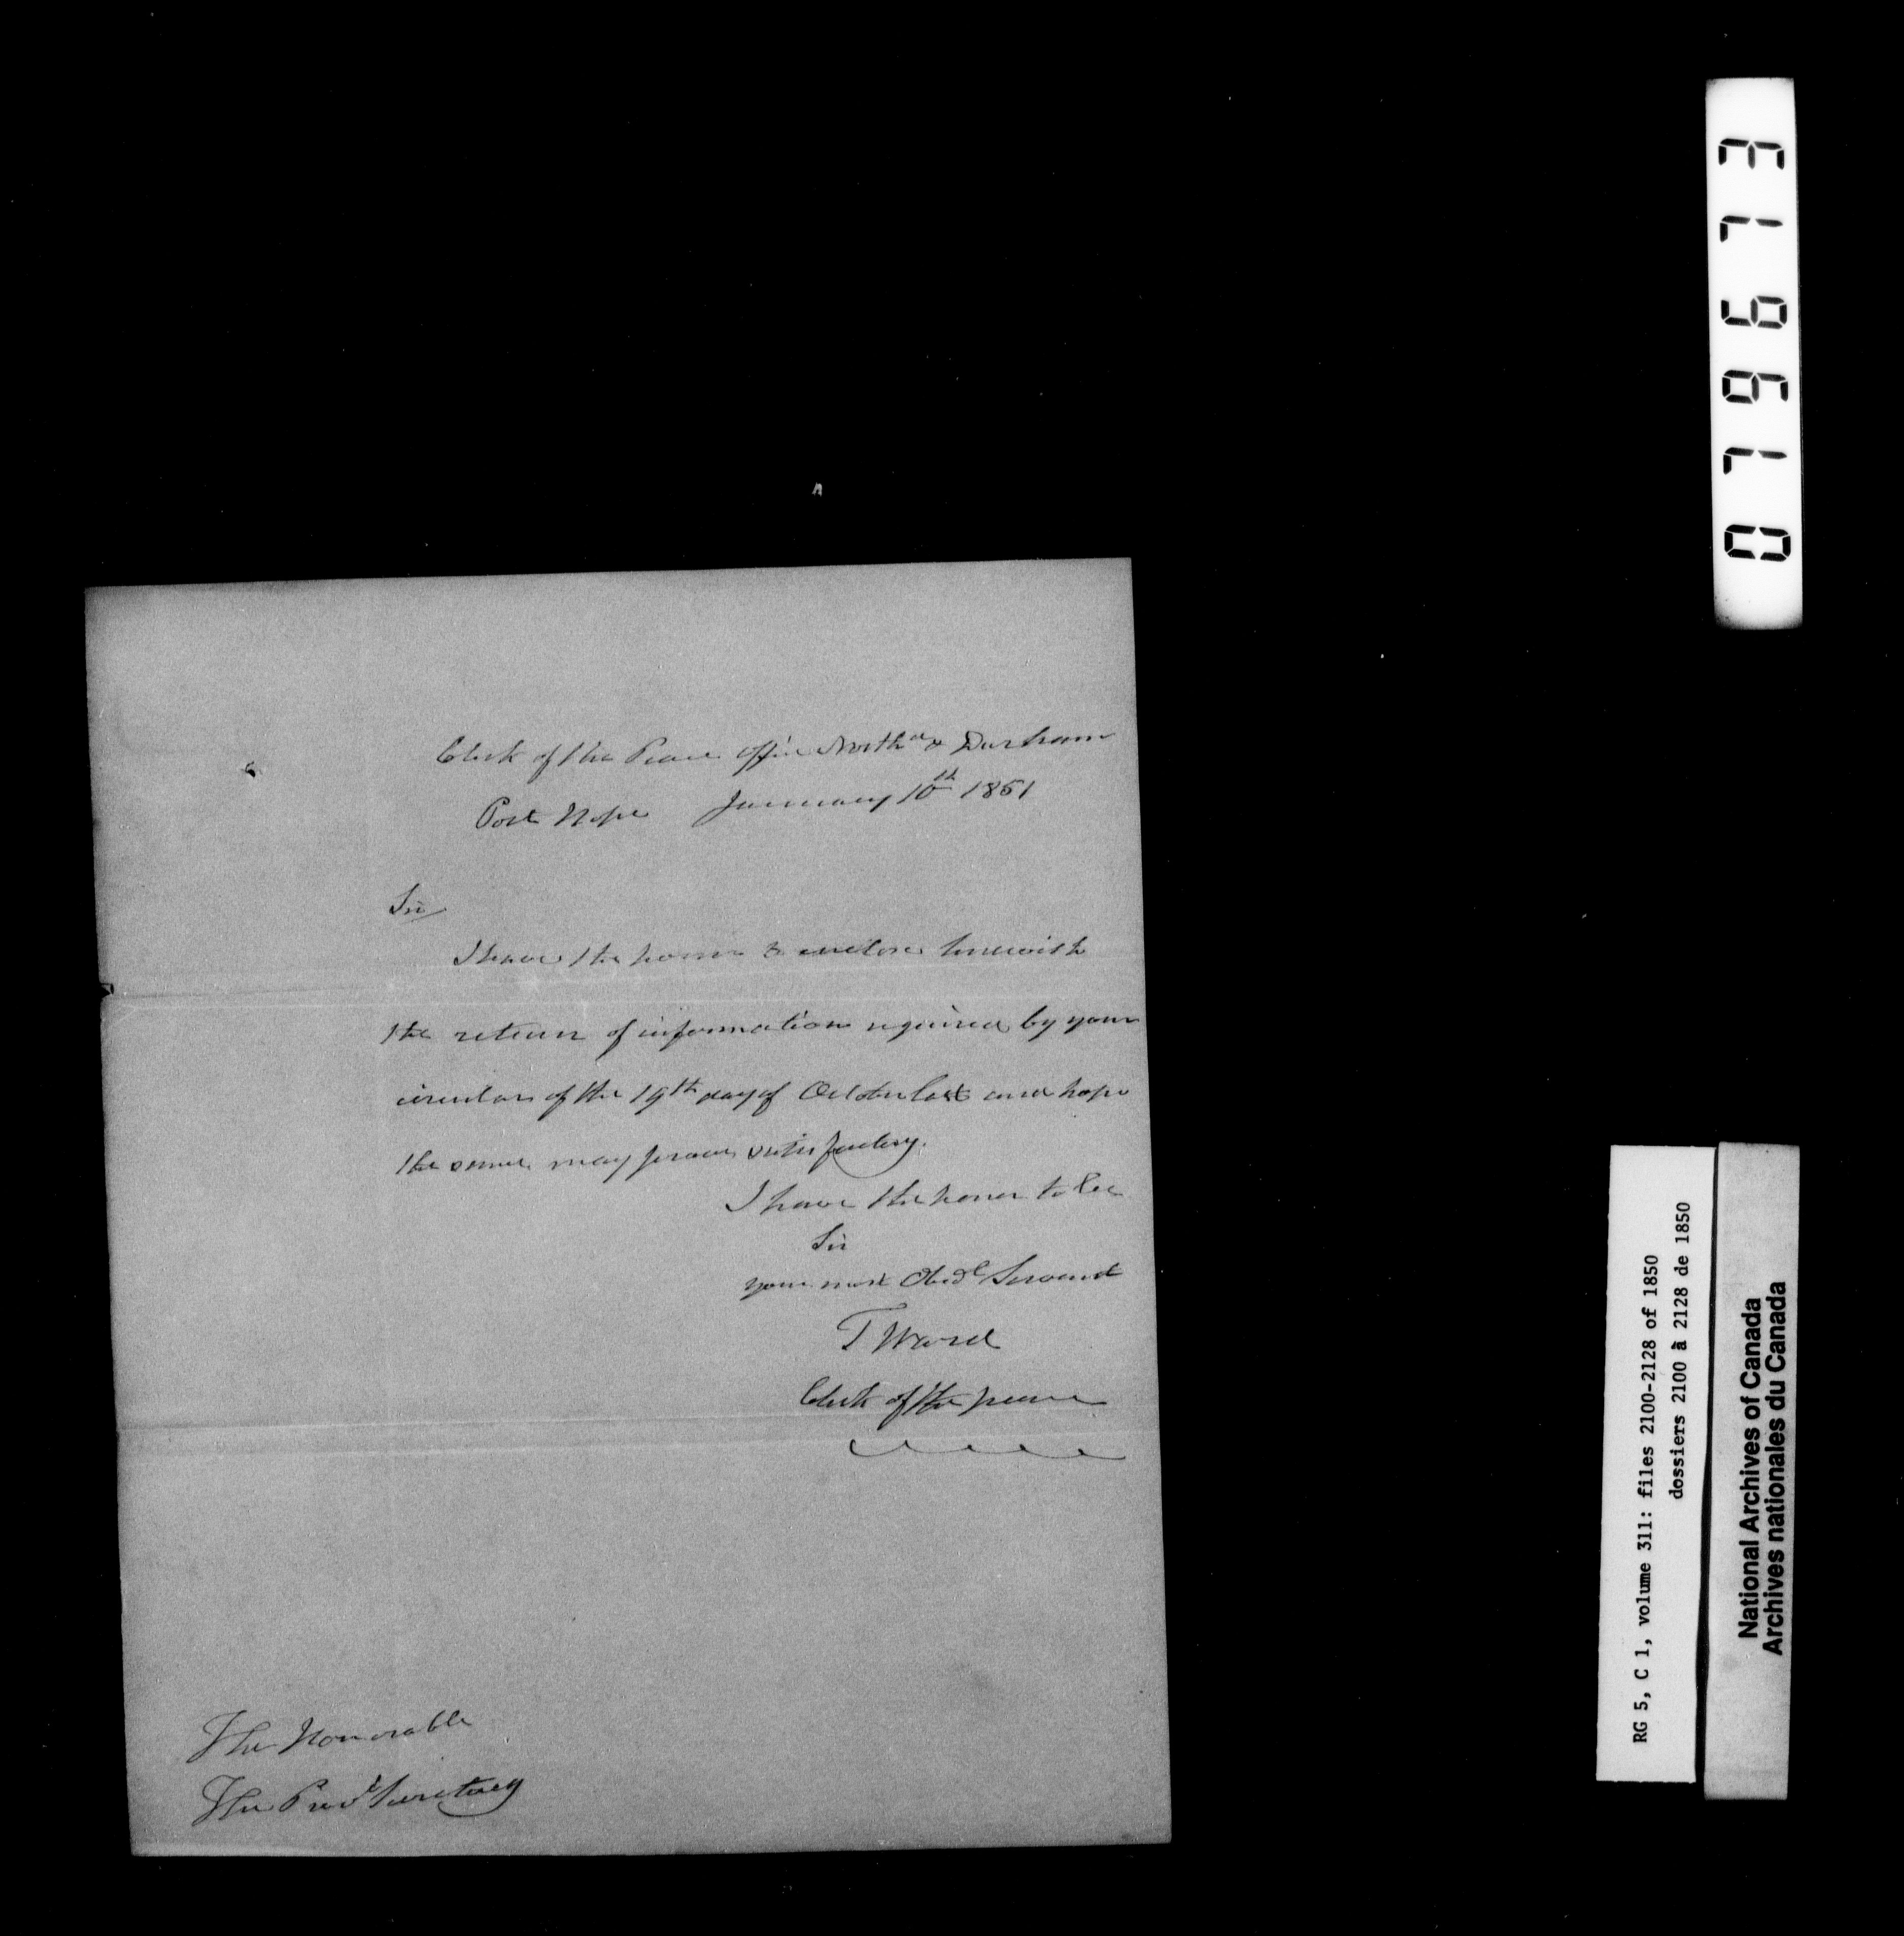 Clerk of the Peace office Northd & Durham
Port Hope January 10th 1851
Sir
I have the honor to enclose herewith
the return of information required by your
circular of the 19th day of October last and hope
the same may prove satisfactory.
I have the honor to be
Sir
your most Obedt Servant
T Ward
Clerk of the peace
The Honorable
The Provl Secretary
017973
RG 5, C 1, volume 311: files 2100-2128 of 1850
dossiers 2100 à 2128 de 1850
National Archives of Canada
Archives nationales du Canada